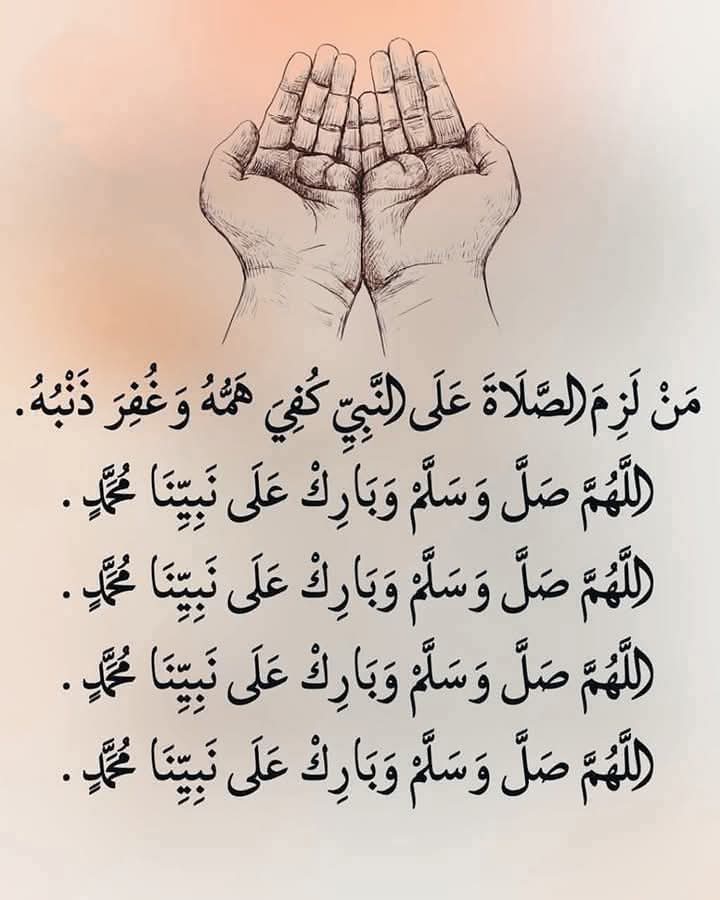 مَنْ لَزِمَ الصَّلَاةَ عَلَى النَّبِيِّ كُفِيَ هَمُّهُ وَغُفِرَ ذَنْبُهُ.
اللَّهُمَّ صَلَّ وَسَلَّمْ وَبَارِكْ عَلَى نَبِيِّنَا مُحَمَّدٍ.
اللَّهُمَّ صَلَّ وَسَلَّمْ وَبَارِكْ عَلَى نَبِيِّنَا مُحَمَّدٍ.
اللَّهُمَّ صَلَّ وَسَلَّمْ وَبَارِكْ عَلَى نَبِيِّنَا مُحَمَّدٍ.
اللَّهُمَّ صَلَّ وَسَلَّمْ وَبَارِكْ عَلَى نَبِيِّنَا مُحَمَّدٍ.